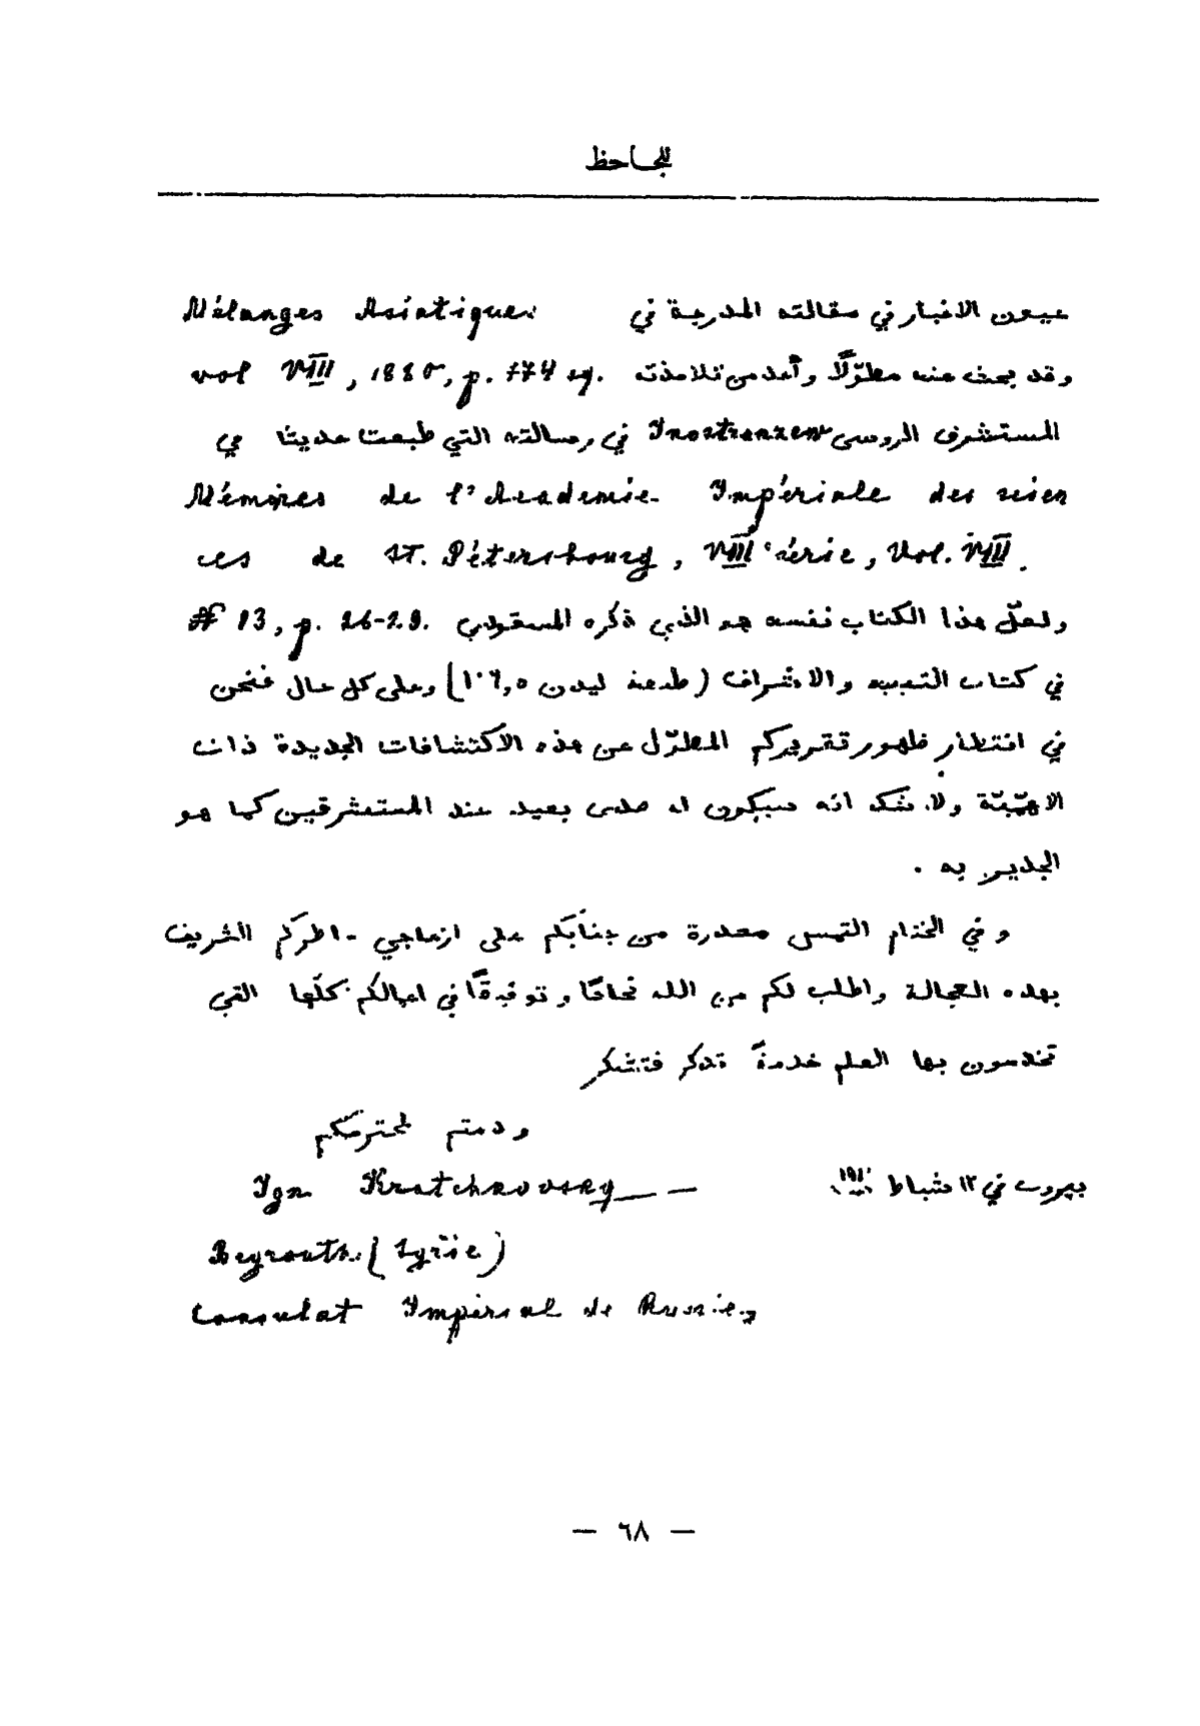 للجاحظ
عيون الاخبار في مقالته المدرجة في Mélanges Asiatiques
vol VIII, 1880, p. 774 sq. وقد بحث عنه مطوّلًا وأحد من تلامذته
المستشرق الروسى Inostranzew في رسالته التي طبعت حديثا في
Mémoires de l'Academie Impériale des scien
ces de St. Pétersbourg, VIII série, Vol. VIII.
# 13, p. 26-29. ولعلّ هذا الكتاب نفسه هو الذي ذكره المسعودي
في كتاب التنبيه والاشراف (طبعة ليدن وعلى كل حال فنحن
في انتظار ظهور تقريركم المطوّل عن هذه الاكتشافات الجديدة ذات
الاهمّيّة ولا شك انه سيكون له صدى بعيد عند المستشرقين كما هو
الجدير به .
وفي الختام التمس معذرة من جنابكم على ازعاجي خاطركم الشريف
بهذه العجالة واطلب لكم من الله نجاحًا وتوفيقًا في اعمالكم كلّها التي
تخدمون بها العلم خدمةً تذكر فتشكر
ودمتم لمحترمكم
Ign. Kratchkovsky
بيروت في ١٢ شباط
Beyrouth (Syrie)
Consulat Impérial de Russie
— ٦٨ —